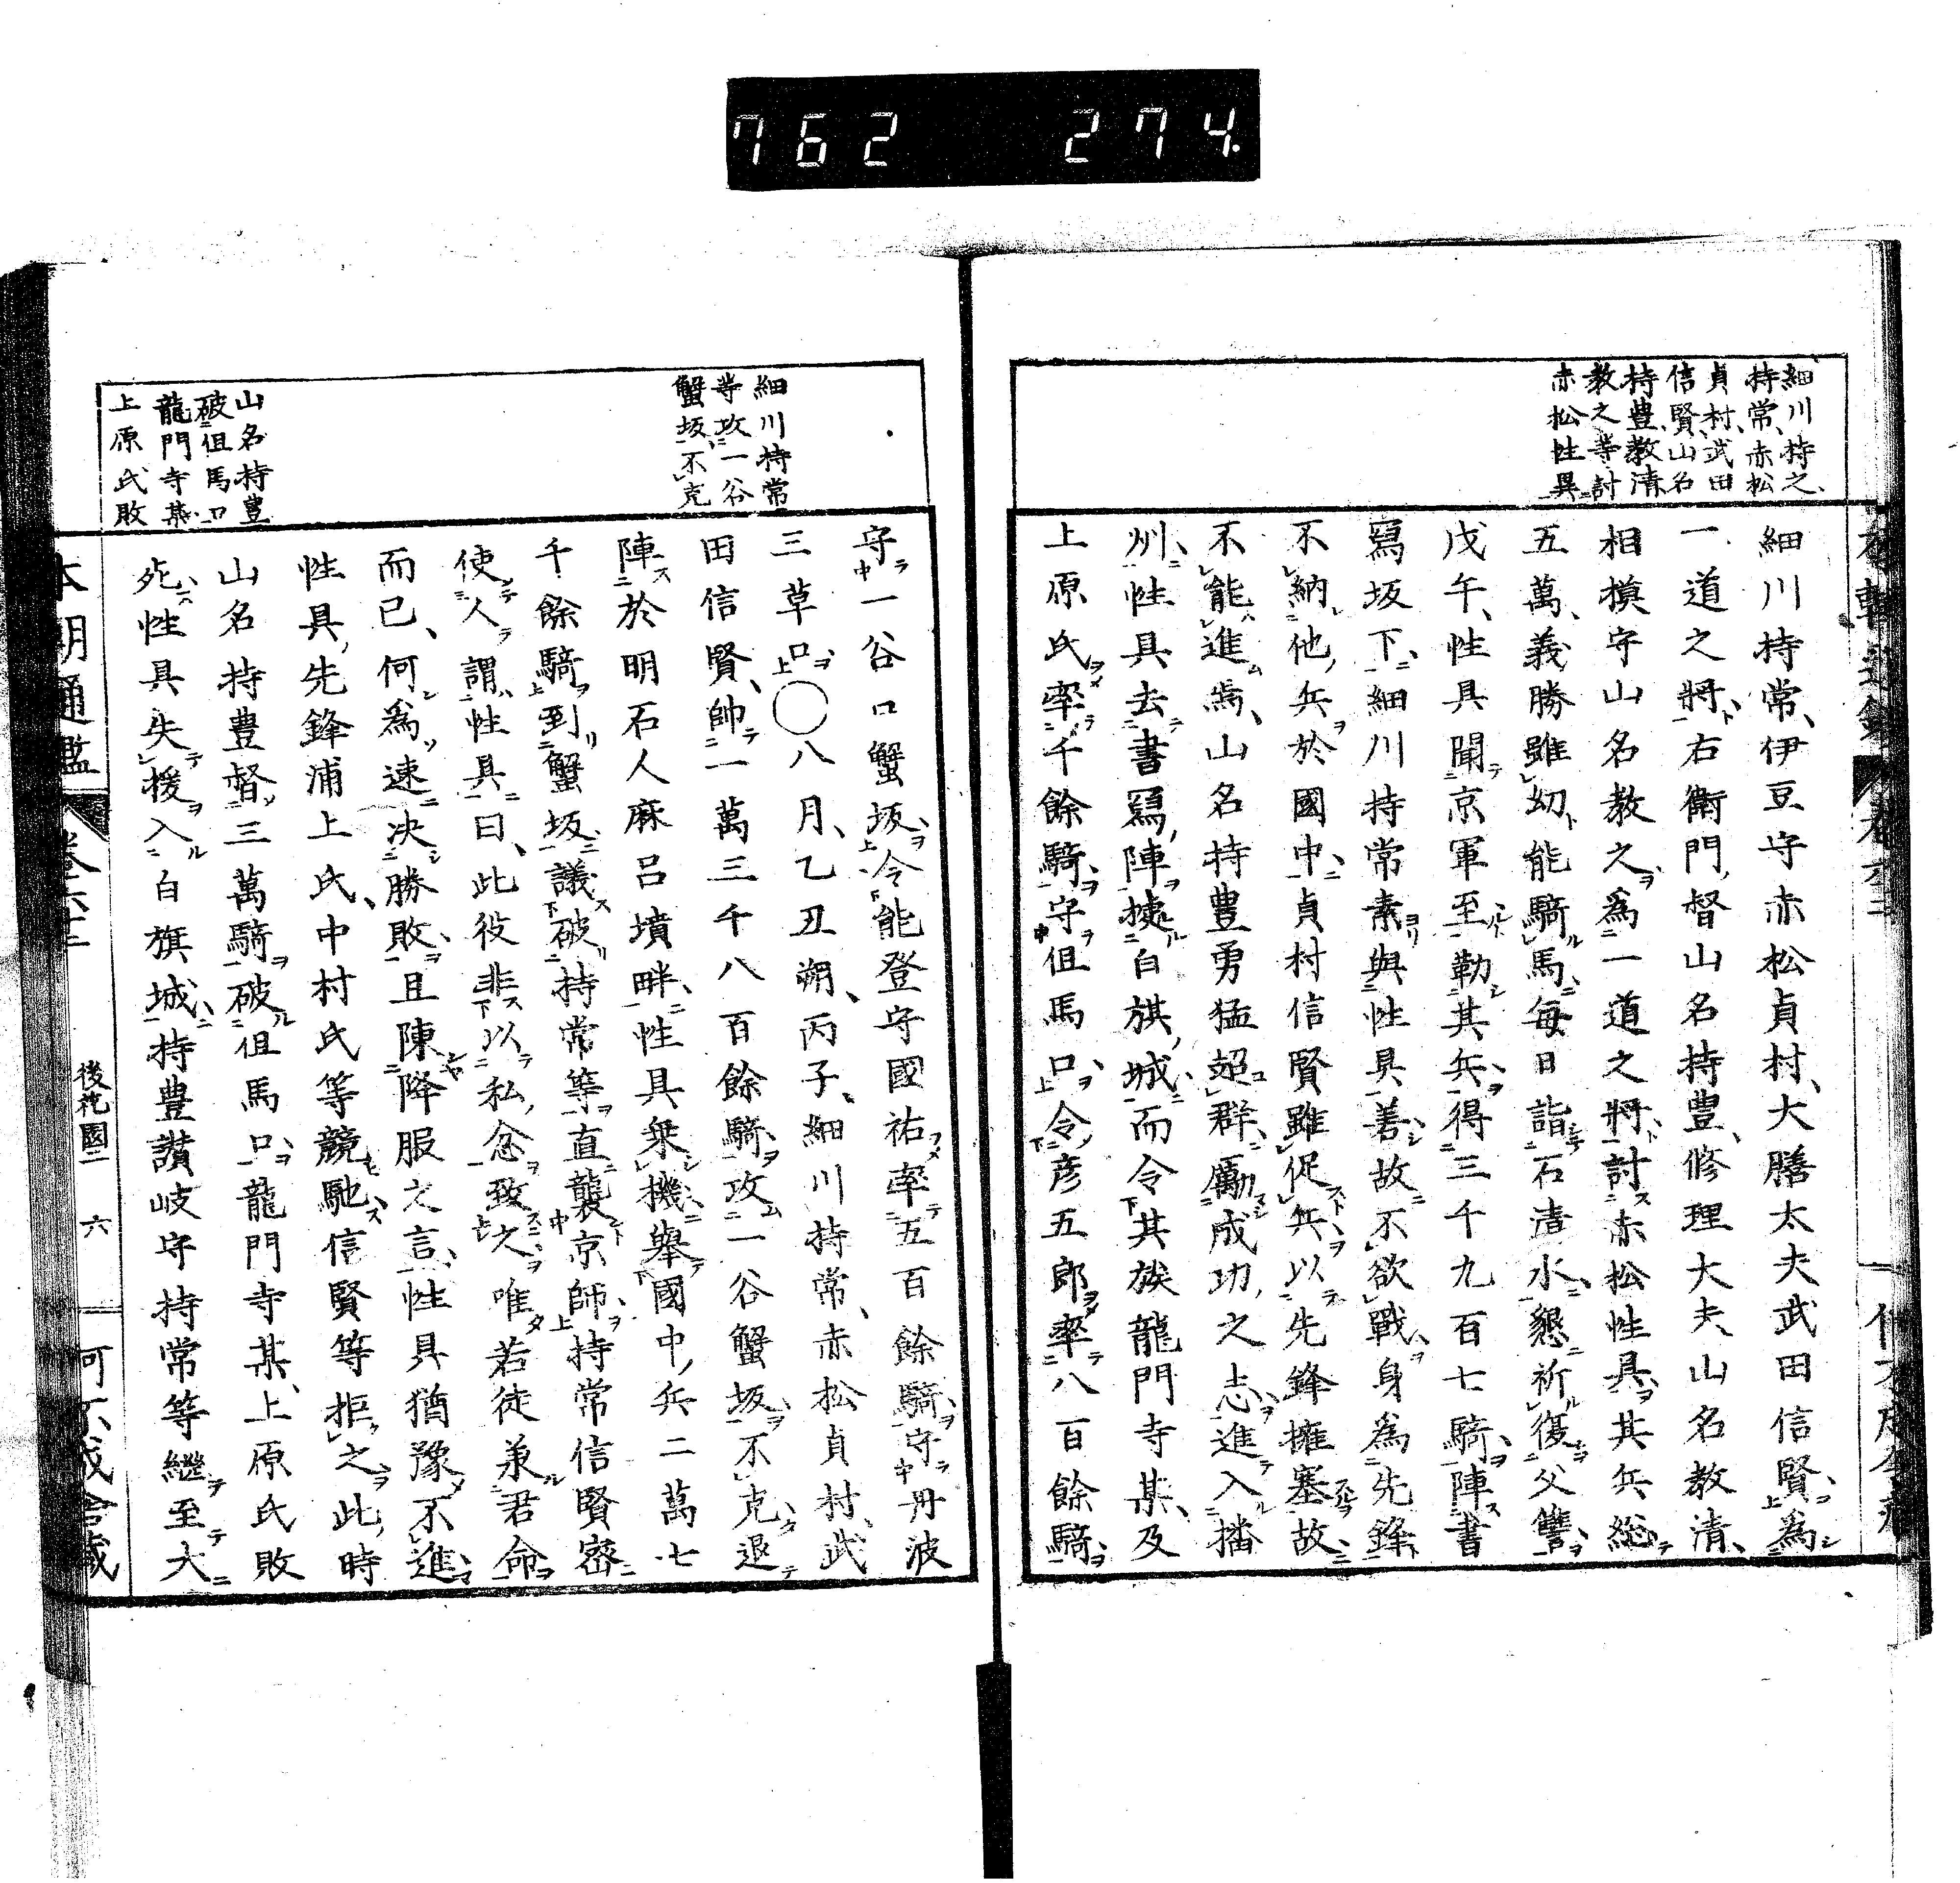 762 274.
細川持之、
持常、赤松
貞村、武田
信賢、山名
持豊、教清、
教之等討
赤松性具
細川持常、伊豆守赤松貞村、大膳太夫武田信賢、爲
一道之將、右衛門督山名持豊、修理大夫山名教清、
相摸守山名教之、爲一道之將、討赤松性具、其兵總
五萬、義勝雖幼能騎馬、毎日詣石清水、懇祈復父讐、
戊午、性具聞京軍至、勒其兵、得三千九百七騎、陣書
寫坂下、細川持常素與性具善、故不欲戰、身爲先鋒、
不納他兵於國中、貞村信賢雖促兵、以先鋒擁塞、故
不能進焉、山名持豊勇猛超群、勵成功之志、進入播
州、性具去書寫陣、據白旗城、而令其族龍門寺某、及
上原氏、率千餘騎、守但馬口、令彦五郎、率八百餘騎、
細川持常
等攻一谷
蟹坂不克
山名持豊
破但馬口
龍門寺某
上原氏敗
守一谷口蟹坂、令能登守國祐、率五百餘騎、守丹波
三草口、〇八月、乙丑朔、丙子、細川持常、赤松貞村、武
田信賢、帥一萬三千八百餘騎、攻一谷蟹坂、不克、退
陣於明石人麻呂墳畔、性具乗機、擧國中兵二萬七
千餘騎、到蟹坂、議破持常等、直襲京師、持常信賢密
使人謂性具曰、此役非以私忿致之、唯若徒兼君命
而已、何爲速决勝敗、且陳降服之言、性具猶豫不進、
性具先鋒浦上氏、中村氏等競馳、信賢等拒之、此時
山名持豊督三萬騎、破但馬口、龍門寺某、上原氏敗
死、性具失援、入白旗城、持豊讃岐守持常等継至、大
本朝通鑑
後花園一
六